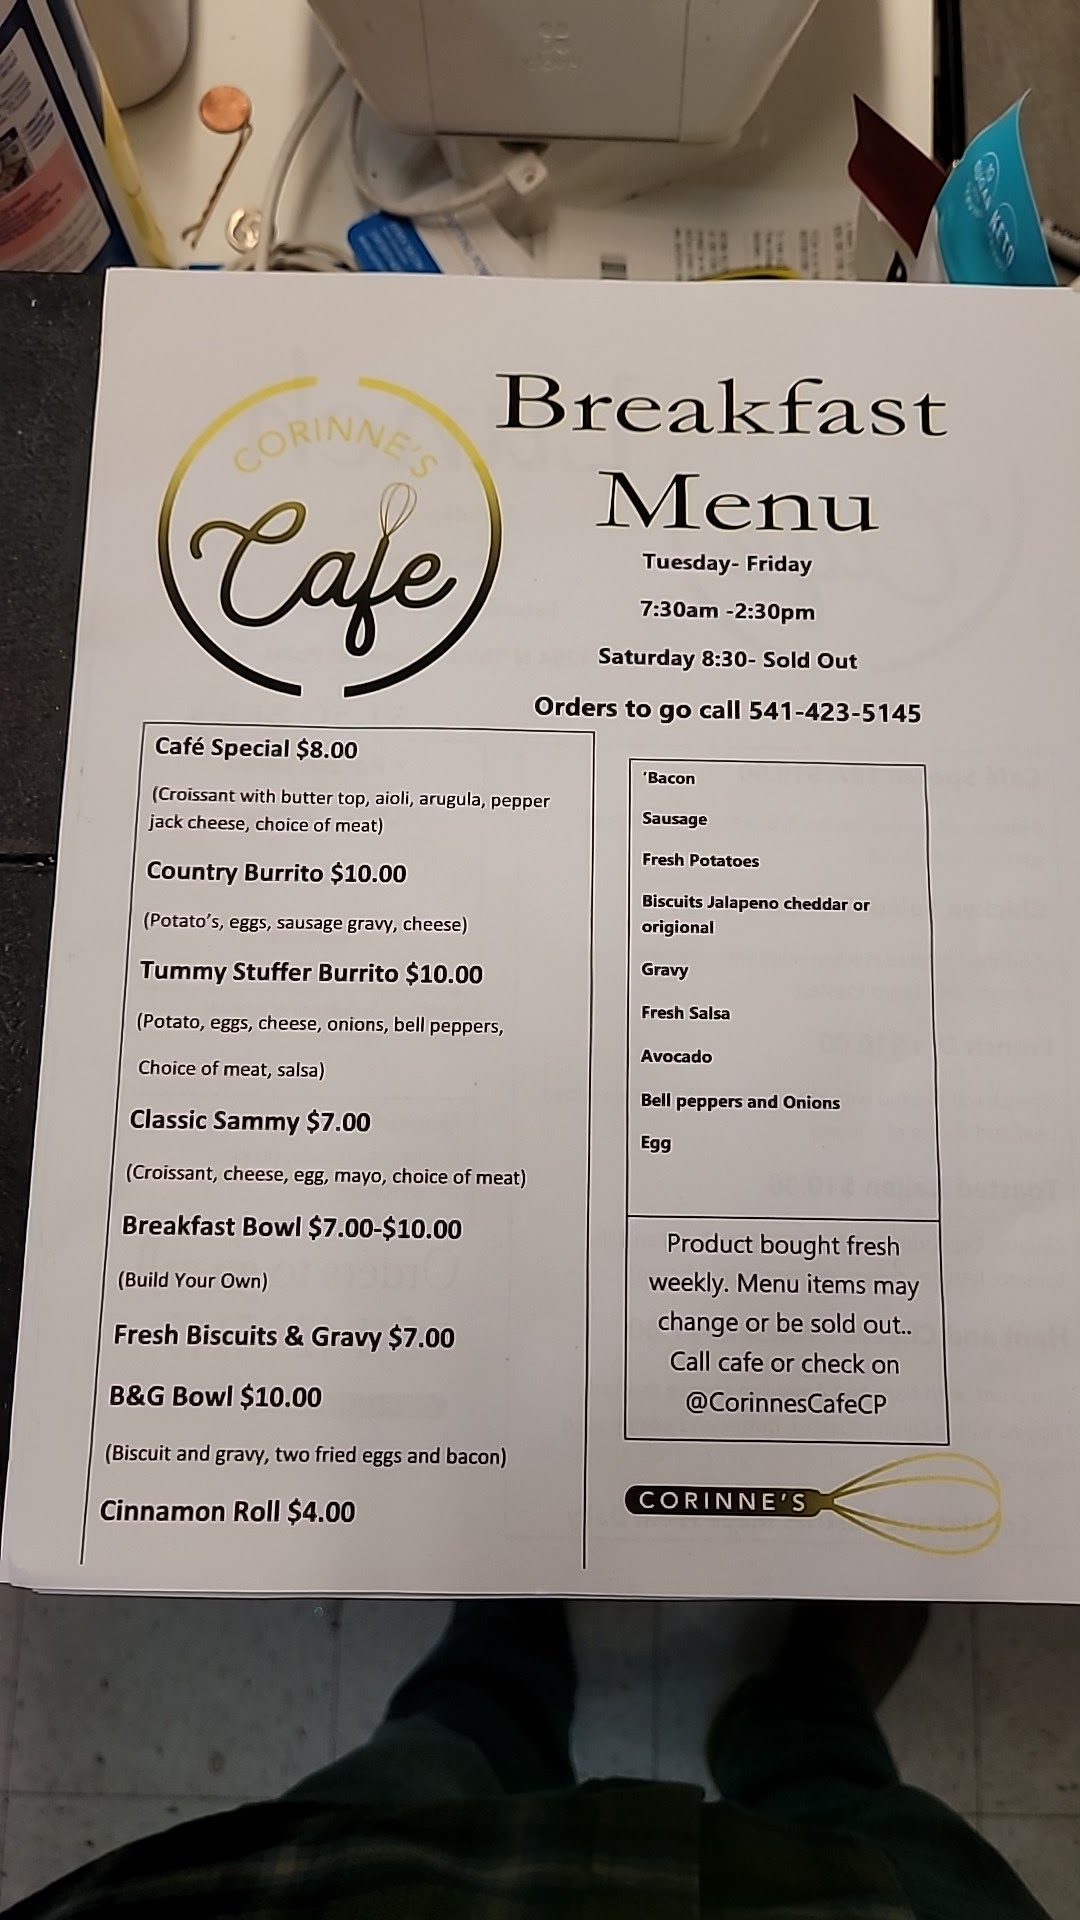 KETO
CORINNE'S
Cafe
Breakfast
Menu
Tuesday- Friday
7:30am -2:30pm
Saturday 8:30- Sold Out
Orders to go call 541-423-5145
Café Special $8.00
(Croissant with butter top, aioli, arugula, pepper
jack cheese, choice of meat)
Country Burrito $10.00
(Potato's, eggs, sausage gravy, cheese)
Tummy Stuffer Burrito $10.00
(Potato, eggs, cheese, onions, bell peppers,
Choice of meat, salsa)
Classic Sammy $7.00
(Croissant, cheese, egg, mayo, choice of meat)
Breakfast Bowl $7.00-$10.00
(Build Your Own)
Fresh Biscuits & Gravy $7.00
B&G Bowl $10.00
(Biscuit and gravy, two fried eggs and bacon)
Cinnamon Roll $4.00
'Bacon
Sausage
Fresh Potatoes
Biscuits Jalapeno cheddar or
origional
Gravy
Fresh Salsa
Avocado
Bell peppers and Onions
Egg
Product bought fresh
weekly. Menu items may
change or be sold out..
Call cafe or check on
@CorinnesCafeCP
CORINNE'S